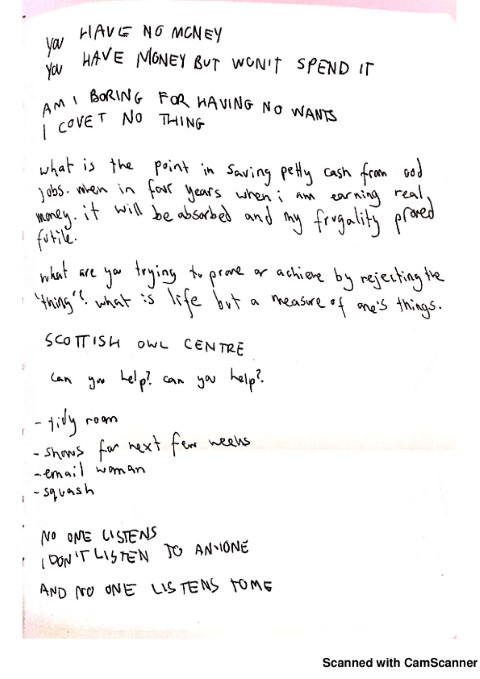 you HAVE NO MONEY
you HAVE MONEY BUT WON'T SPEND IT
AM I BORING FOR HAVING NO WANTS
I COVET NO THING
what is the point in saving petty cash from odd
jobs. when in four years when i am earning real
money. it will be absorbed and my frugality proved
futile.
what are you trying to prove or achieve by rejecting the
'thing'? what is life but a measure of one's things.
SCOTTISH OWL CENTRE
can you help? can you help?
- tidy room
- shows for next few weeks
- email woman
- squash
NO ONE LISTENS
I DON'T LISTEN TO ANYONE
AND NO ONE LISTENS TO ME
Scanned with CamScanner